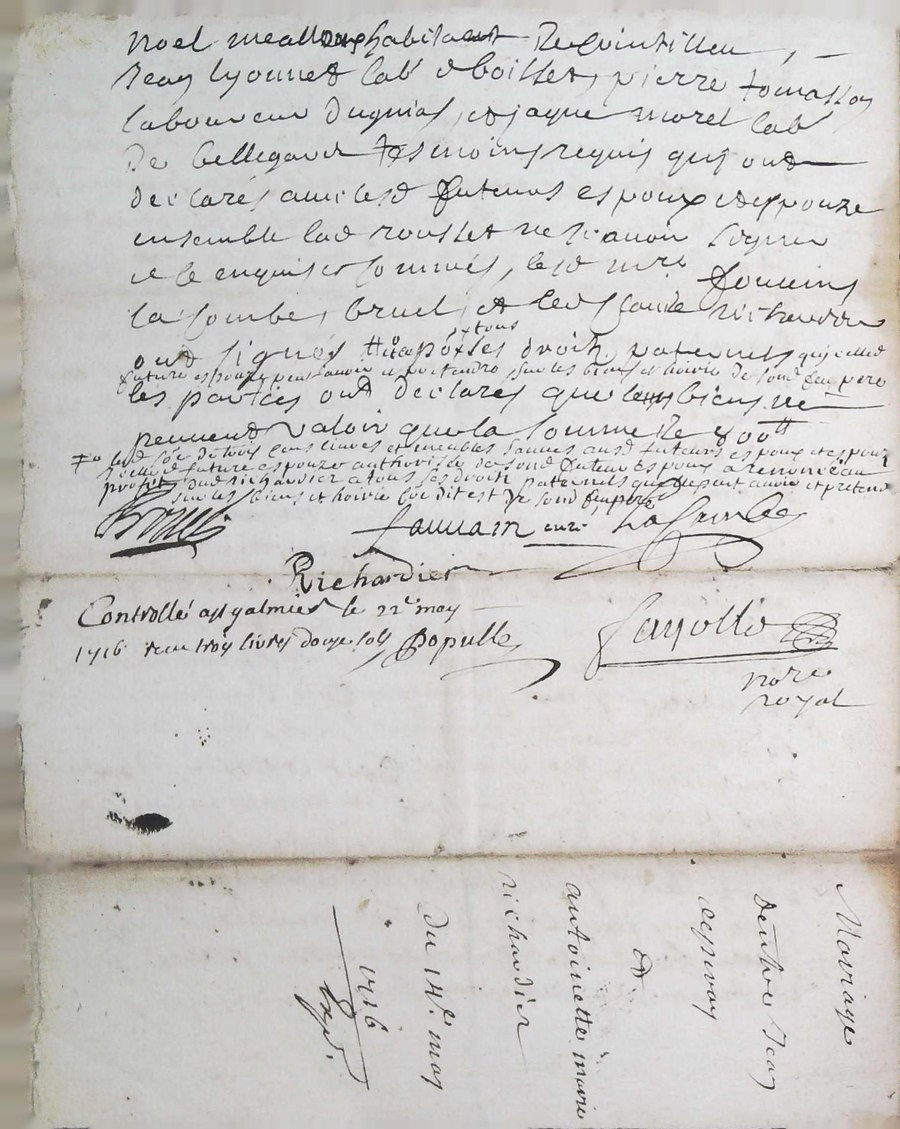 noel habitant de quintilleu,
Jean lyonnet lab^r boisset, pierre tomasson
laboureur et jaque morel lab^r
de bellegarde tesmoins requis qui ont
declarés avec lesd futeurs espoux et espouze
ensemble lad rousset ne scavoir signer
de ce enquis et sommés, led m^re
la combe, bruel, et led s^r richardier
ont signés ses droits paternels que lad
future espouze peut avoir et pretendre sur les biens et hoirie de sond feu pere
les parties ont declares que les biens ne
peuvent valoir que la somme de 800^tt
lad so^e de trois cens livres et meubles aud futeurs espoux et espouze
future espouze authorisée de sond futeur espoux a renoncé au
profit dud richardier a tous ses droits paternels quelle peut avoir et pretendre
sur les biens et hoirie de sond feu pere
Bruel
curé LaCombe
Richardier
Controllé a s^t galmier le 22^e may
1716 receu trois livres douze sols Populle
fayolle
no^re
royal
Mariage
Dentre Jean
et
antoinette marie
richardier
du 14^e may
1716